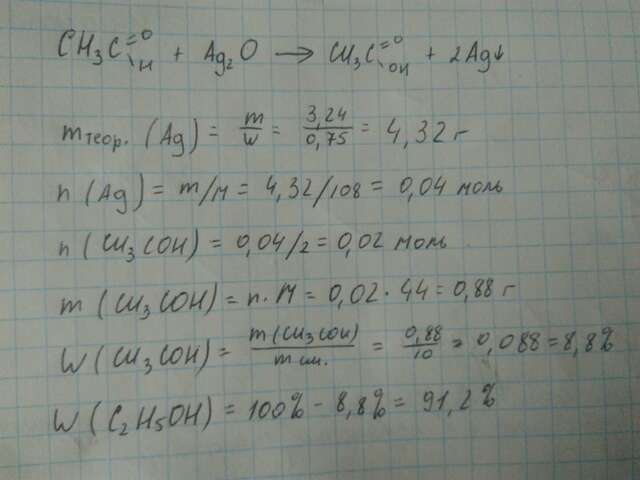 CH₃C=O\H + Ag₂O → CH₃C=O\OH + 2Ag↓
mтеор. (Ag) = m/W = 3,24/0,75 = 4,32 г
n (Ag) = m/M = 4,32/108 = 0,04 моль
n (CH₃COH) = 0,04/2 = 0,02 моль
m (CH₃COH) = n·M = 0,02·44 = 0,88 г
W (CH₃COH) = m(CH₃COH)/m см. = 0,88/10 = 0,088 = 8,8%
W (C₂H₅OH) = 100% - 8,8% = 91,2%